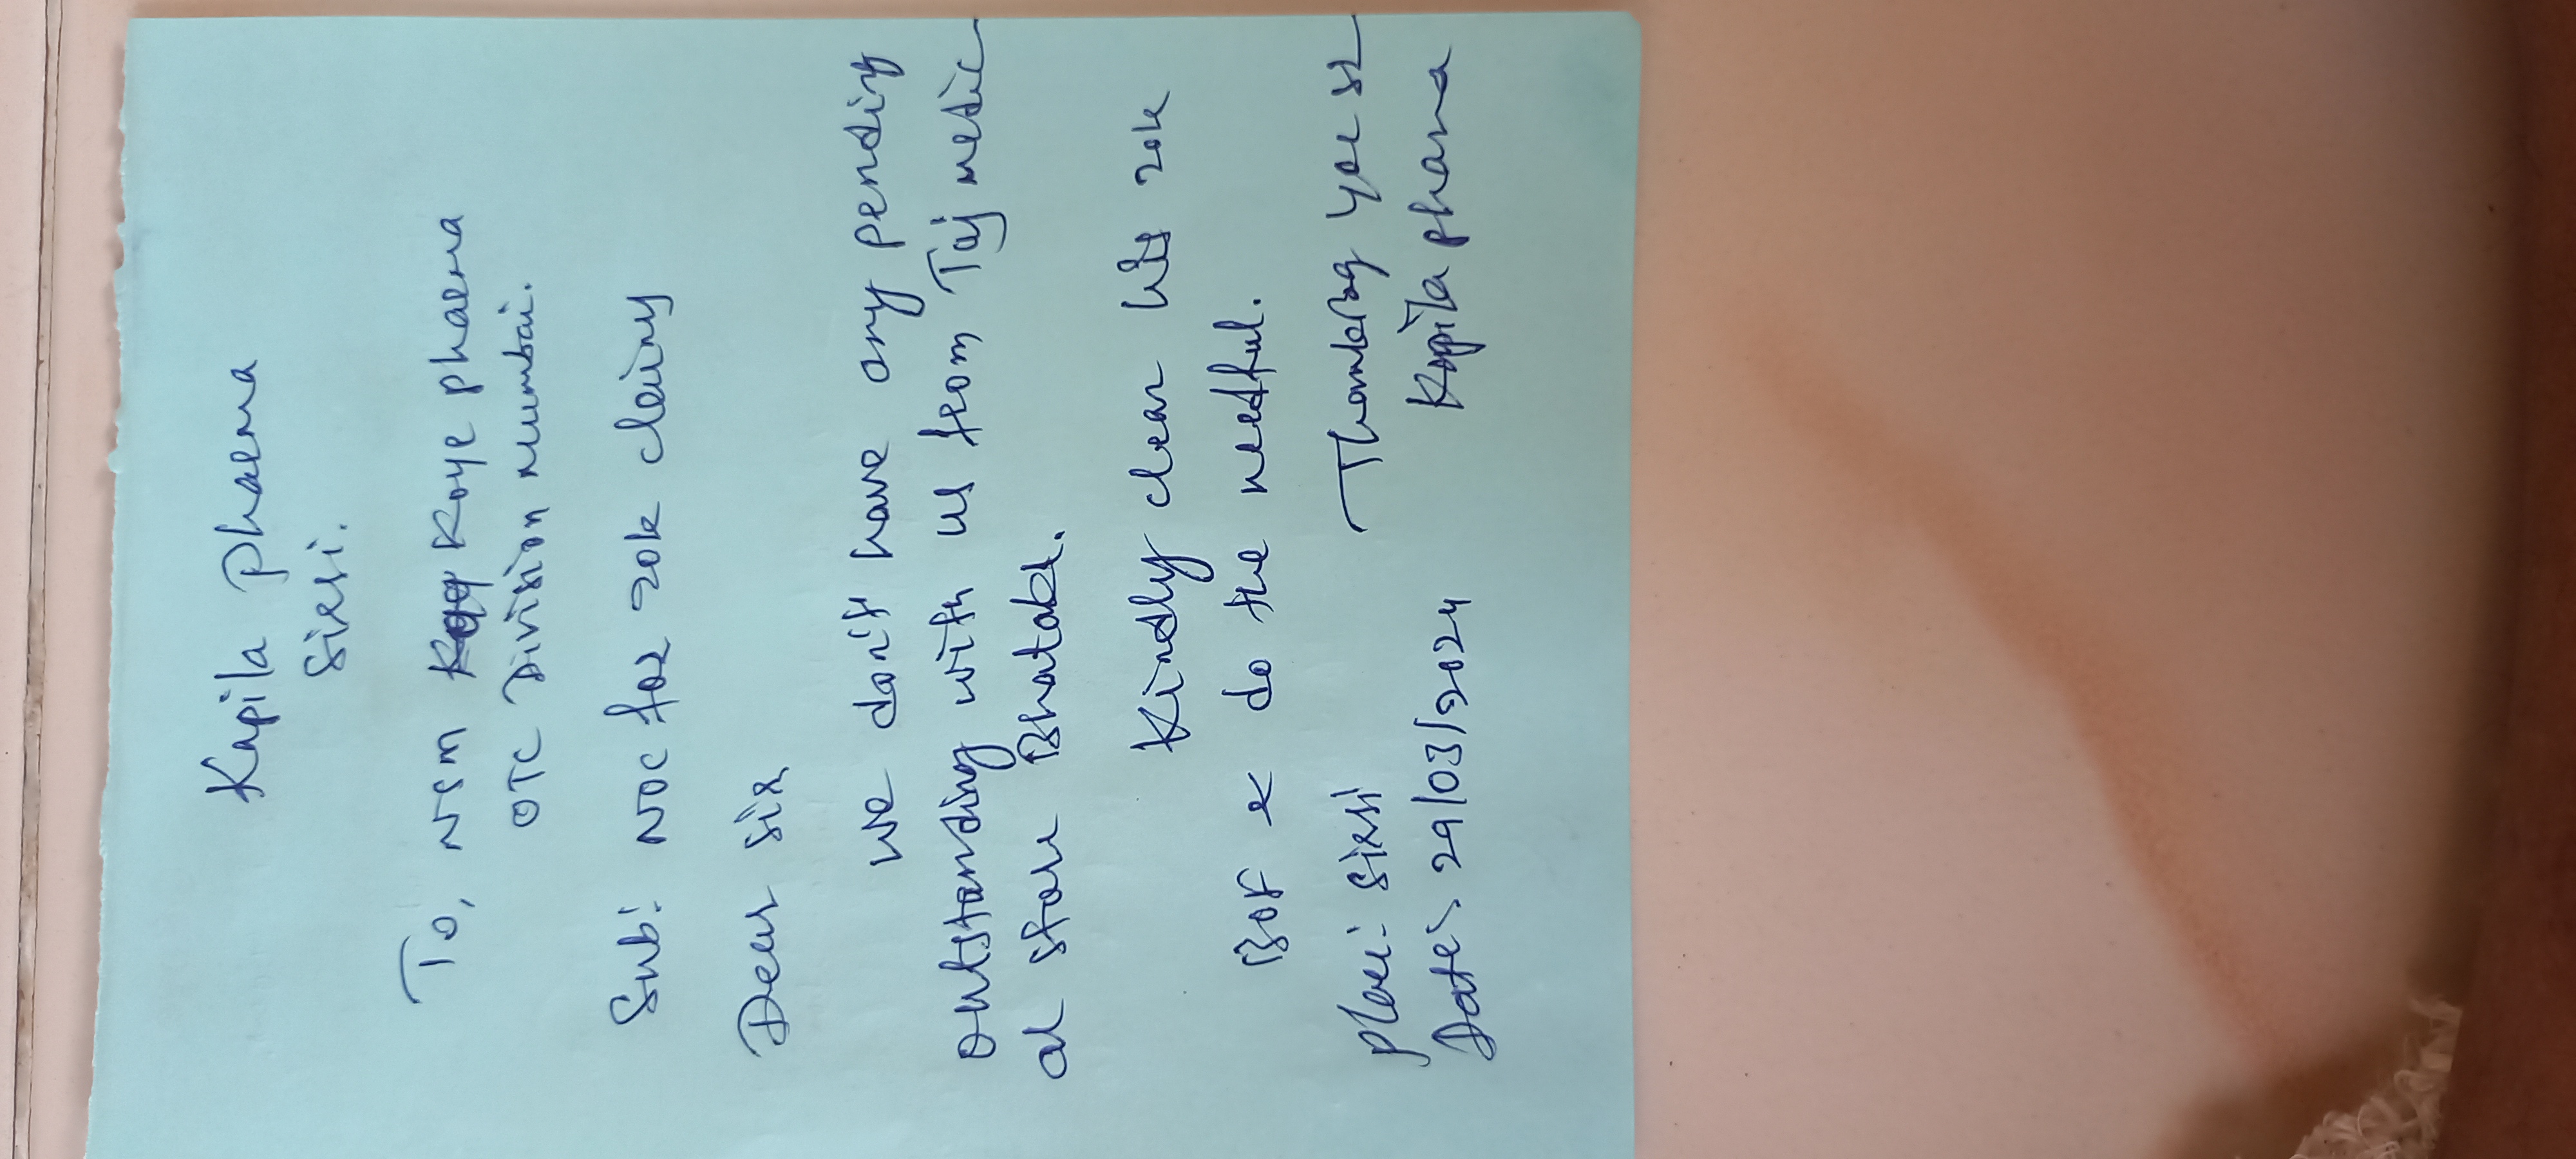 Kapila Pharma
Sirsi.
To, NSM Koye pharma
OTC Division mumbai.
Sub: NOC for 20k claim
Dear sir
we don't have any pending
outstanding with us from Taj medic
al store Bhatakal.
Kindly clear his 20k
& do the needful.
Thanking you sir
Place:- Sirsi Kapila pharma
Date:- 29/03/2024